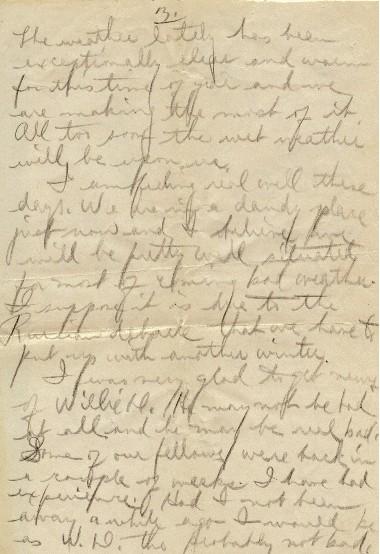 3.
The weather lately has been
exceptionally clear and warm
for this time of year and we
are making the most of it.
All too soon the wet weather
will be upon us.
I am feeling real well these
days. We are in a dandy place
just now and I believe
will be pretty well situated
for most of coming bad weather.
I suppose it is due to the
Russian debacle that we have to
put up with another winter.
I was very glad to get news
of Willie D. He may not be bad
at all and he may be real bad.
Some of our fellows were back in
a couple of weeks. I have had
experience. Had I not been
away a while ago I would be
as W. D. tho probably not bad,